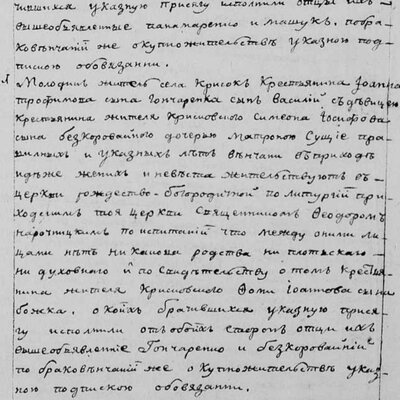 чившихся указную присягу исполнили отцы ихъ
вышеобъявленные панамаренко и машукъ. побра-
ковѣнчаніи же о купножительствѣ указною под-
пискою обовязанни.
Молодикъ житель села Крисокъ Крестьянина Іоанна
трофимова сына гончаренка сынъ Василій съ дѣвицею
крестьянина жителя Крисковского Симеона Іосифова
сына безкоровайного дочерью Матроною Сущіе пра-
вилныхъ и указныхъ лѣтъ вѣнчани въ приходѣ
идѣже женихъ и невѣста жителствуютъ въ
церкви рождество-богородичной по литургіи при-
ходскимъ тоя церкви Священникомъ Феодоромъ
нарочницкимъ по испитаніи что между оними ли-
цами нѣтъ ни какова родства ни плотскаго
ни духовнаго и по свидѣтельству о томъ крестья-
нина жителя Крисковского Фоми Іоаннова сына
божка. о коихъ брачившихся указную прися-
гу исполнили отъ обоихъ сторонъ отцы ихъ
вышеобъявленніе Гончаренко и безкоровайній
по браковѣнчаніи же о купножительствѣ указ-
ною подпискою обовязанни.